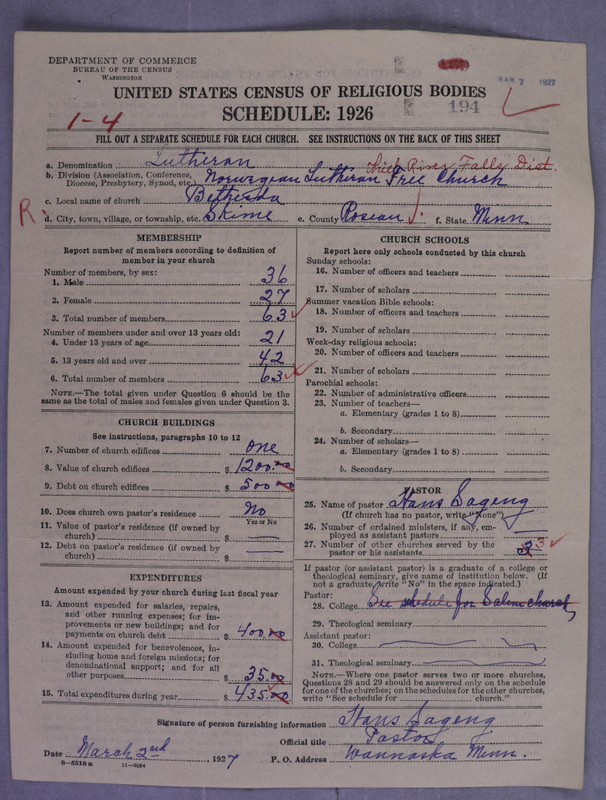 DEPARTMENT OF COMMERCE
BUREAU OF THE CENSUS
WASHINGTON
MAR 7 1927
UNITED STATES CENSUS OF RELIGIOUS BODIES
SCHEDULE: 1926
194
1-4
FILL OUT A SEPARATE SCHEDULE FOR EACH CHURCH. SEE INSTRUCTIONS ON THE BACK OF THIS SHEET
a. Denomination Lutheran
Thief River Falls Dist.
b. Division (Association, Conference, Diocese, Presbytery, Synod, etc.) Norwegian Lutheran Free Church
c. Local name of church Bethesda
R:
d. City, town, village, or township, etc. Skime e. County Roseau f. State Minn
MEMBERSHIP
Report number of members according to definition of
member in your church
Number of members, by sex:
1. Male 36
2. Female 27
3. Total number of members 63
Number of members under and over 13 years old:
4. Under 13 years of age 21
5. 13 years old and over 42
6. Total number of members 63
NOTE.—The total given under Question 6 should be
same as the total of males and females given under Question 3.
CHURCH BUILDINGS
See instructions, paragraphs 10 to 12
7. Number of church edifices one
8. Value of church edifices $ 1200.00
9. Debt on church edifices $ 500.00
10. Does church own pastor's residence? No
Yes or No
11. Value of pastor's residence (if owned by
church) $ —
12. Debt on pastor's residence (if owned by
church) $ —
EXPENDITURES
Amount expended by your church during last fiscal year
13. Amount expended for salaries, repairs,
and other running expenses; for im-
provements or new buildings; and for
payments on church debt $ 400.00
14. Amount expended for benevolences, in-
cluding home and foreign missions; for
denominational support; and for all
other purposes $ 35.00
15. Total expenditures during year $ 435.00
CHURCH SCHOOLS
Report here only schools conducted by this church
Sunday schools:
16. Number of officers and teachers
17. Number of scholars
Summer vacation Bible schools:
18. Number of officers and teachers
19. Number of scholars
Week-day religious schools:
20. Number of officers and teachers
21. Number of scholars
Parochial schools:
22. Number of administrative officers
23. Number of teachers—
a. Elementary (grades 1 to 8)
b. Secondary
24. Number of scholars—
a. Elementary (grades 1 to 8)
b. Secondary
PASTOR
25. Name of pastor Hans Sageng
(If church has no pastor, write "None")
26. Number of ordained ministers, if any, em-
ployed as assistant pastors
27. Number of other churches served by the
pastor or his assistants 3
If pastor (or assistant pastor) is a graduate of a college or
theological seminary, give name of institution below. (If
not a graduate, write "No" in the space indicated.)
Pastor:
28. College See schedule for Salem church,
29. Theological seminary
Assistant pastor:
30. College
31. Theological seminary
NOTE.—Where one pastor serves two or more churches,
Questions 28 and 29 should be answered only on the schedule
for one of the churches; on the schedules for the other churches,
write "See schedule for church."
Signature of person furnishing information Hans Sageng
Official title Pastor
Date March 2nd, 1927 P. O. Address Wannaska Minn.
8-5518 a 11-9664